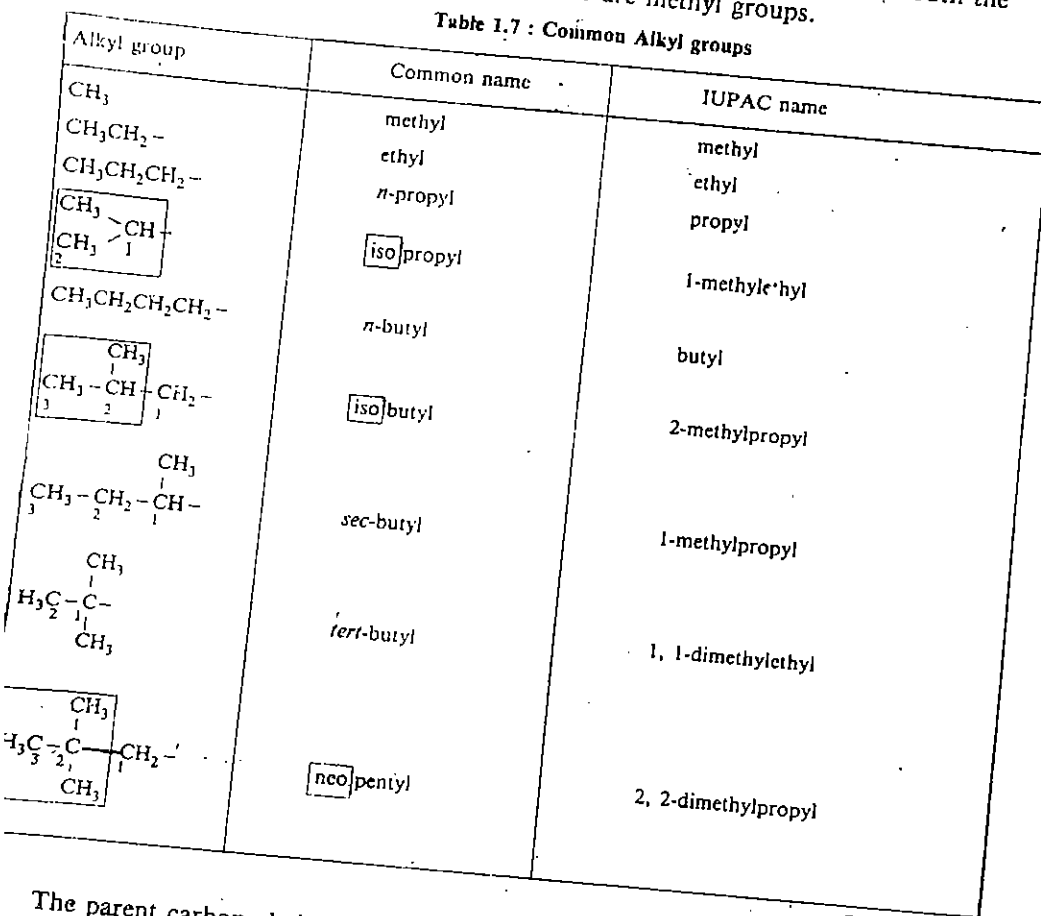 the
are methyl groups.
Table 1.7 : Common Alkyl groups
Alkyl group Common name IUPAC name
CH₃ methyl methyl
CH₃CH₂– ethyl ethyl
CH₃CH₂CH₂– n-propyl propyl
CH₃
CH– isopropyl 1-methylethyl
CH₃ 1
2
CH₃CH₂CH₂CH₂– n-butyl butyl
CH₃
CH₃–CH–CH₂– isobutyl 2-methylpropyl
3 2 1
CH₃
CH₃–CH₂–CH– sec-butyl 1-methylpropyl
3 2 1
CH₃
H₃C–C– tert-butyl 1, 1-dimethylethyl
2 1
CH₃
CH₃
H₃C–C–CH₂– neopentyl 2, 2-dimethylpropyl
3 2 1
CH₃
The parent carbon